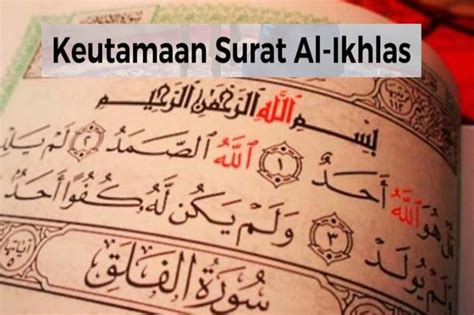 Keutamaan Surat Al-Ikhlas
بِسْمِ اللَّهِ الرَّحْمَٰنِ الرَّحِيمِ
قُلْ هُوَ اللَّهُ أَحَدٌ ١ اللَّهُ الصَّمَدُ ٢ لَمْ يَلِدْ
وَلَمْ يُولَدْ ٣ وَلَمْ يَكُن لَّهُ كُفُوًا أَحَدٌ
سُورَةُ الْفَلَقِ